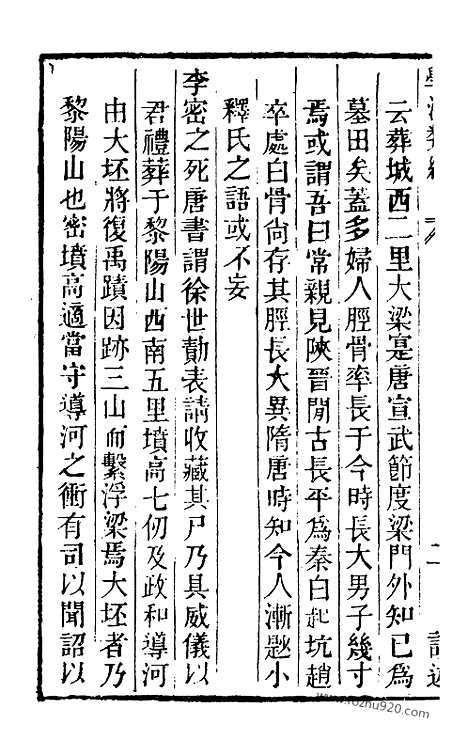 云葬城西二里大梁寔唐宣武節度梁門外知已爲
墓田矣蓋多婦人脛骨率長于今時長大男子幾寸
焉或謂吾曰常親見陝晉閒古長平爲秦白起坑趙
卒處白骨尚存其脛長大異隋唐時知今人漸趂小
釋氏之語或不妄
李密之死唐書謂徐世勣表請收藏其尸乃具威儀以
君禮葬于黎陽山西南五里墳高七仞及政和導河
由大坯將復禹蹟因跡三山而繫浮梁焉大坯者乃
黎陽山也密墳高適當守導河之衝有司以聞詔以
www.fozhu920.com